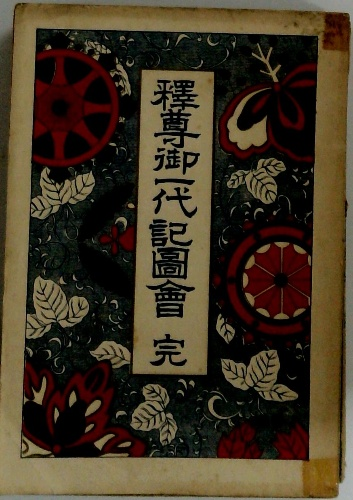 釋尊御一代記圖會 完